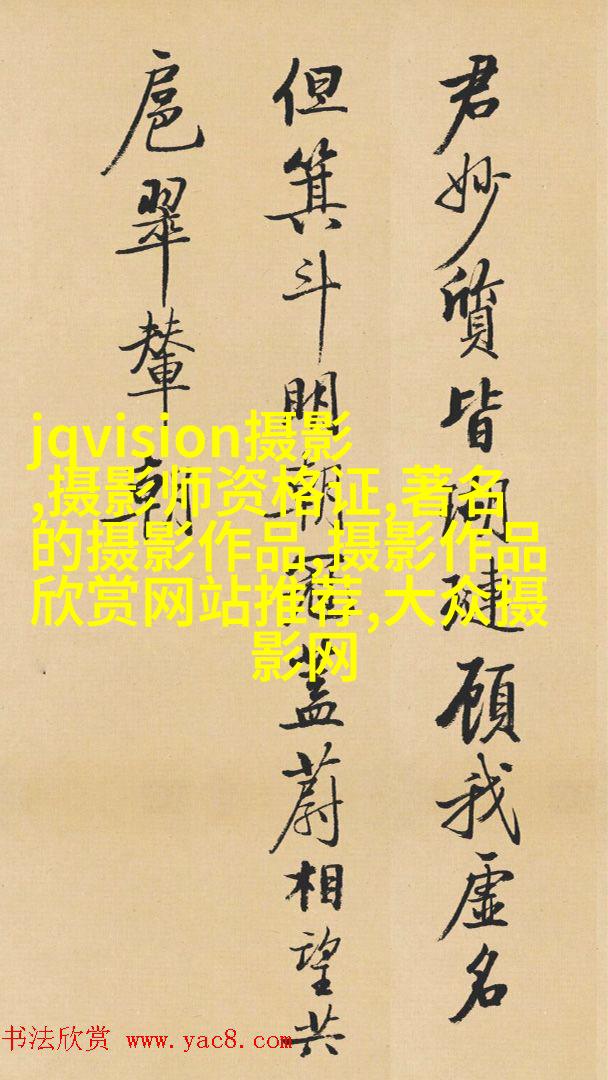 君妙質皆瑚璉顧我虛名
但箕斗明朝冠蓋蔚相望共
扈翠輦朝
jqvision摄影
,摄影师资格证,著名
的摄影作品,摄影作品
欣赏网站推荐,大众摄
影网
书法欣赏 www.yac8.com